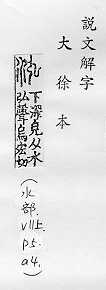 說文解字
大徐本
泓
下深皃从水
弘聲烏宏切
(水部. V11上. P5. a4.)